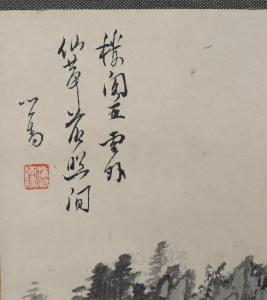 樓閣五雲外
仙華落照間
心畬